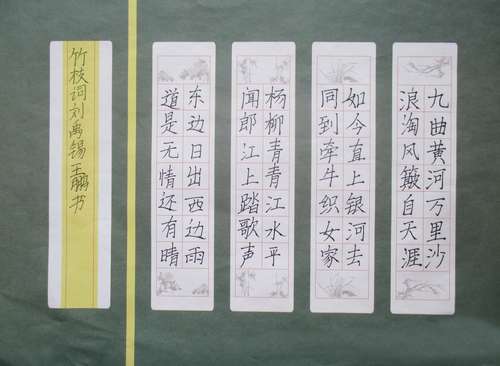 九曲黄河万里沙
浪淘风簸自天涯
如今直上银河去
同到牵牛织女家
杨柳青青江水平
闻郎江上踏歌声
东边日出西边雨
道是无情还有晴
竹枝词刘禹锡王鹏书